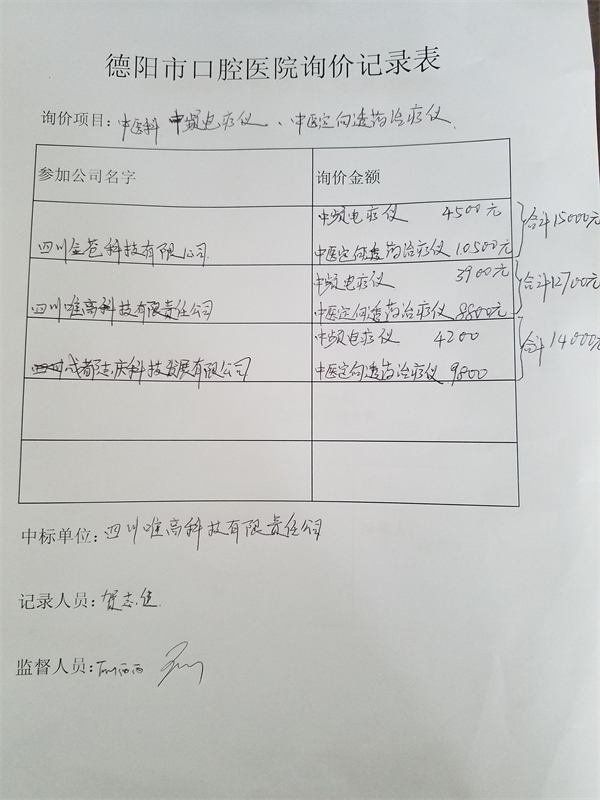 德阳市口腔医院询价记录表
询价项目：中医科 中频电疗仪、中医定向透药治疗仪
参加公司名字 询价金额
中频电疗仪 4500元
四川金苍科技有限公司 中医定向透药治疗仪 10500元 合计15000元
中频电疗仪 3900元
四川唯高科技有限责任公司 中医定向透药治疗仪 8800元 合计12700元
中频电疗仪 4200
成都志庆科技发展有限公司 中医定向透药治疗仪 9800 合计14000元
中标单位：四川唯高科技有限责任公司
记录人员：贺志佳
监督人员：